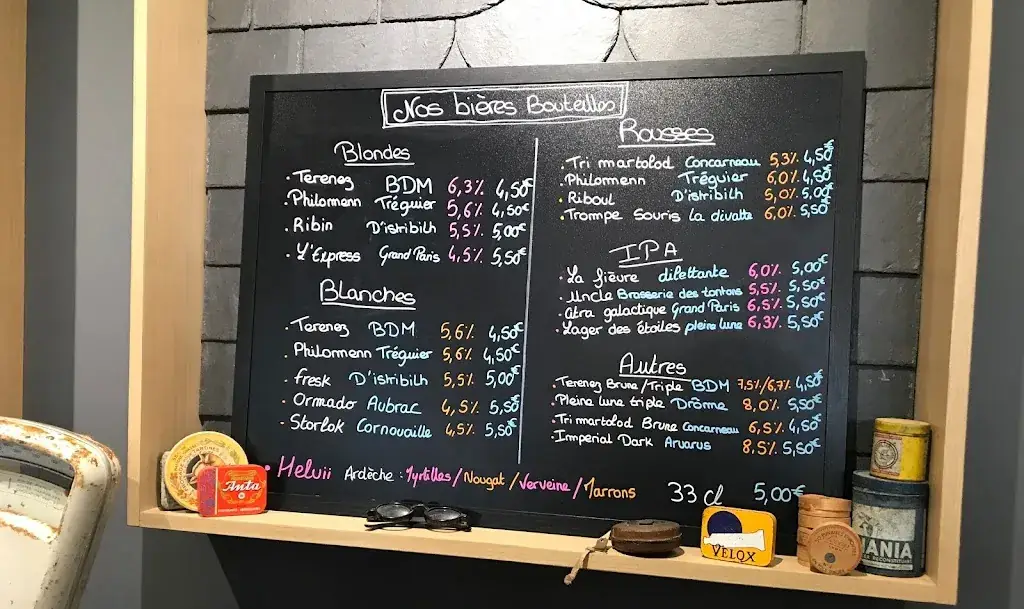 Nos bières Bouteilles
Blondes
. Terenez BDM 6,3% 4,50€
. Philomenn Tréguier 5,6% 4,50€
. Ribin D'istribilh 5,5% 5,00€
. L'Express Grand Paris 4,5% 5,50€
Blanches
. Terenez BDM 5,6% 4,50€
. Philomenn Tréguier 5,6% 4,50€
. fresk D'istribilh 5,5% 5,00€
. Ormado Aubrac 4,5% 5,50€
. Storlok Cornouaille 4,5% 5,50€
Rousses
. Tri martolod Concarneau 5,3% 4,50€
. Philomenn Tréguier 6,0% 4,50€
. Riboul D'istribilh 5,0% 5,00€
. Trompe Souris la divatte 6,0% 5,50€
IPA
. La fièvre dilettante 6,0% 5,00€
. Uncle Brasserie des tontons 5,5% 5,50€
. Atra galactique Grand Paris 6,5% 5,50€
. Lager des étoiles pleine lune 6,3% 5,50€
Autres
. Terenez Brune/Triple BDM 7,5%/6,7% 4,50€
. Pleine lune triple Drôme 8,0% 5,50€
. Tri martolod Brune Concarneau 6,5% 4,50€
. Imperial Dark Arvarus 8,5% 5,50€
. Helvii Ardèche : Myrtilles / Nougat / Verveine / Marrons 33 cl 5,00€
Anta
VELOX
ANIA